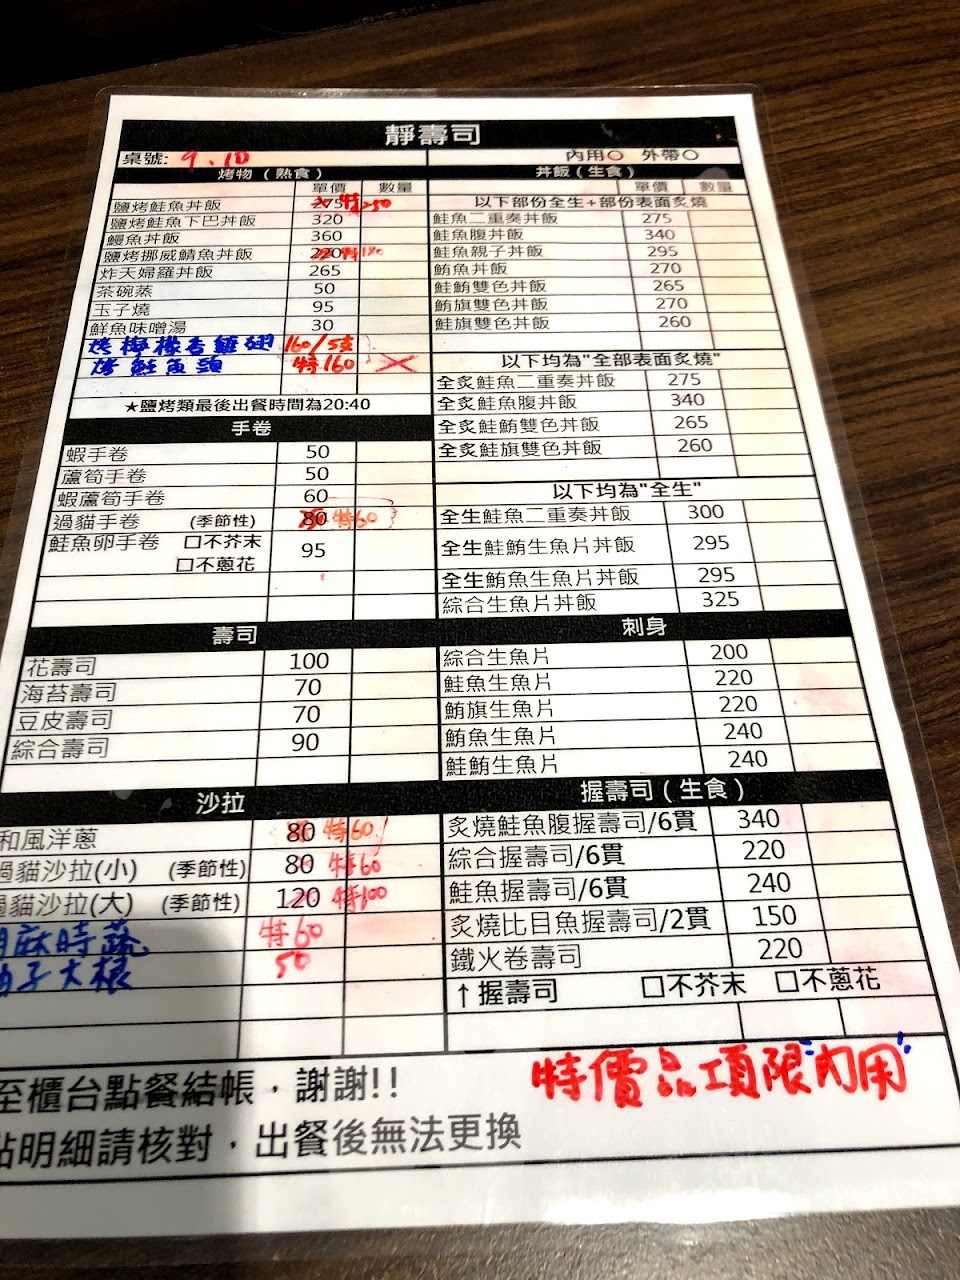 靜壽司
桌號: 9.10
內用○ 外帶○
烤物（熟食）
單價 數量
鹽烤鮭魚丼飯 275 特250
鹽烤鮭魚下巴丼飯 320
鰻魚丼飯 360
鹽烤挪威鯖魚丼飯 220 特180
炸天婦羅丼飯 265
茶碗蒸 50
玉子燒 95
鮮魚味噌湯 30
烤檸檬香雞翅 160/5支
烤鮭魚頭 特160
★鹽烤類最後出餐時間為20:40
手卷
蝦手卷 50
蘆筍手卷 50
蝦蘆筍手卷 60
過貓手卷 (季節性) 80 特60
鮭魚卵手卷 □不芥末 95
□不蔥花
壽司
花壽司 100
海苔壽司 70
豆皮壽司 70
綜合壽司 90
沙拉
和風洋蔥 80 特60
過貓沙拉(小) (季節性) 80 特60
過貓沙拉(大) (季節性) 120 特100
胡麻時蔬 特60
柚子大根 50
丼飯（生食）
單價 數量
以下部份全生+部份表面炙燒
鮭魚二重奏丼飯 275
鮭魚腹丼飯 340
鮭魚親子丼飯 295
鮪魚丼飯 270
鮭鮪雙色丼飯 265
鮪旗雙色丼飯 270
鮭旗雙色丼飯 260
以下均為"全部表面炙燒"
全炙鮭魚二重奏丼飯 275
全炙鮭魚腹丼飯 340
全炙鮭鮪雙色丼飯 265
全炙鮭旗雙色丼飯 260
以下均為"全生"
全生鮭魚二重奏丼飯 300
全生鮭鮪生魚片丼飯 295
全生鮪魚生魚片丼飯 295
綜合生魚片丼飯 325
刺身
綜合生魚片 200
鮭魚生魚片 220
鮪旗生魚片 220
鮪魚生魚片 240
鮭鮪生魚片 240
握壽司（生食）
炙燒鮭魚腹握壽司/6貫 340
綜合握壽司/6貫 220
鮭魚握壽司/6貫 240
炙燒比目魚握壽司/2貫 150
鐵火卷壽司 220
↑握壽司 □不芥末 □不蔥花
至櫃台點餐結帳，謝謝!!
特價品項限"內用"
點明細請核對，出餐後無法更換